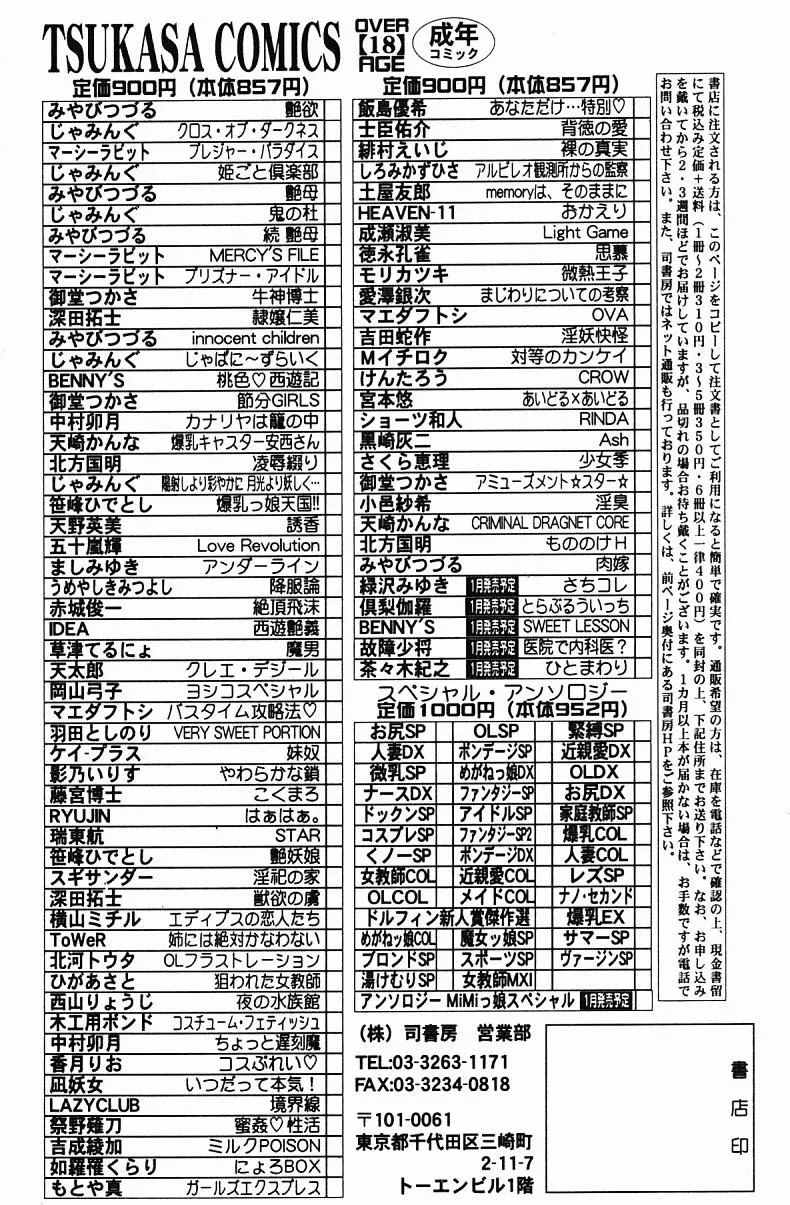 TSUKASA COMICS
OVER
【18】
AGE
成年
コミック
定価900円（本体857円）
みやびつづる 艶欲
じゃみんぐ クロス・オブ・ダークネス
マーシーラビット プレジャー・パラダイス
じゃみんぐ 姫ごと倶楽部
みやびつづる 艶母
じゃみんぐ 鬼の杜
みやびつづる 続 艶母
マーシーラビット MERCY'S FILE
マーシーラビット プリズナー・アイドル
御堂つかさ 牛神博士
深田拓士 隷嬢仁美
みやびつづる innocent children
じゃみんぐ じゃぱに〜ずらいく
BENNY'S 桃色♡西遊記
御堂つかさ 節分GIRLS
中村卯月 カナリヤは籠の中
天崎かんな 爆乳キャスター安西さん
北方国明 凌辱綴り
じゃみんぐ 陽射しより彩やかに 月光より妖しく…
笹峰ひでとし 爆乳っ娘天国!!
天野英美 誘香
五十嵐輝 Love Revolution
ましみゆき アンダーライン
うめやしきみつよし 降服論
赤城俊一 絶頂飛沫
IDEA 西遊艶義
草津てるにょ 魔男
天太郎 クレエ・デジール
岡山弓子 ヨシコスペシャル
マエダフトシ バスタイム攻略法♡
羽田としのり VERY SWEET PORTION
ケイ-プラス 妹奴
影乃いりす やわらかな鎖
藤宮博士 こくまろ
RYUJIN はぁはぁ。
瑞東航 STAR
笹峰ひでとし 艶妖娘
スギサンダー 淫祀の家
深田拓士 獣欲の虜
横山ミチル エディプスの恋人たち
ToWeR 姉には絶対かなわない
北河トウタ OLフラストレーション
ひがあさと 狙われた女教師
西山りょうじ 夜の水族館
木工用ボンド コスチューム・フェティッシュ
中村卯月 ちょっと遅刻魔
香月りお コスぷれい♡
凪妖女 いつだって本気！
LAZYCLUB 境界線
祭野薙刀 蜜姦♡性活
吉成綾加 ミルクPOISON
如羅罹くらり にょろBOX
もとや真 ガールズエクスプレス
定価900円（本体857円）
飯島優希 あなただけ…特別♡
士臣佑介 背徳の愛
緋村えいじ 裸の真実
しろみかずひさ アルビレオ観測所からの監察
土屋友郎 memoryは、そのままに
HEAVEN-11 おかえり
成瀬淑美 Light Game
徳永孔雀 思慕
モリカツキ 微熱王子
愛澤銀次 まじわりについての考察
マエダフトシ OVA
吉田蛇作 淫妖快怪
Mイチロク 対等のカンケイ
けんたろう CROW
宮本悠 あいどる×あいどる
ショーツ和人 RINDA
黒崎灰二 Ash
さくら恵理 少女季
御堂つかさ アミューズメント☆スター☆
小邑紗希 淫臭
天崎かんな CRIMINAL DRAGNET CORE
北方国明 もののけH
みやびつづる 肉嫁
緑沢みゆき 1月発売予定 さちコレ
倶梨伽羅 1月発売予定 とらぶるういっち
BENNY'S 1月発売予定 SWEET LESSON
故障少将 1月発売予定 医院で内科医？
茶々木紀之 1月発売予定 ひとまわり
スペシャル・アンソロジー
定価1000円（本体952円）
お尻SP OLSP 緊縛SP
人妻DX ボンデージSP 近親愛DX
微乳SP めがねっ娘DX OLDX
ナースDX ファンタジーSP お尻DX
ドックンSP アイドルSP 家庭教師SP
コスプレSP ファンタジーSP2 爆乳COL
くノ一SP ボンデージDX 人妻COL
女教師COL 近親愛COL レズSP
OLCOL メイドCOL ナノ・セカンド
ドルフィン新人賞傑作選 爆乳EX
めがねッ娘COL 魔女ッ娘SP サマーSP
ブロンドSP スポーツSP ヴァージンSP
湯けむりSP 女教師MXI
アンソロジー MiMiっ娘スペシャル 1月発売予定
（株）司書房 営業部
TEL:03-3263-1171
FAX:03-3234-0818
〒101-0061
東京都千代田区三崎町
2-11-7
トーエンビル1階
書店印
書店に注文される方は、このページをコピーして注文書としてご利用になると簡単で確実です。通販希望の方は、在庫を電話などで確認の上、現金書留
にて税込み定価＋送料（1冊〜2冊310円・3〜5冊350円・6冊以上一律400円）を同封の上、下記住所までお送り下さい。なお、お申し込み
を戴いてから2・3週間ほどでお届けしていますが、品切れの場合お待ち戴くことがございます。1カ月以上本が届かない場合は、お手数ですが電話で
お問い合わせ下さい。また、司書房ではネット通販も行っております。詳しくは、前ページ奥付にある司書房HPをご参照下さい。